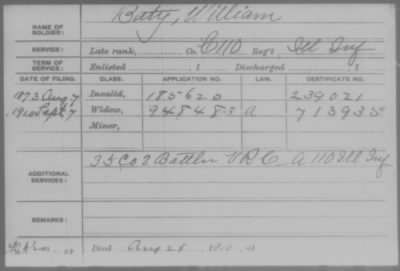 NAME OF SOLDIER: Baty, William
SERVICE: Late rank, Co. C 110 Reg't Ill Inf
TERM OF SERVICE: Enlisted 1 Discharged 1
DATE OF FILING. CLASS. APPLICATION NO. LAW. CERTIFICATE NO.
1873 Aug 7 Invalid, 185620 239021
1910 Sept 7 Widow, 948483 A 713935
Minor,
ADDITIONAL SERVICES: 35 Co 2 Battln V R C — A 110 Ill Inf
REMARKS:
Died Aug 28 1910 at